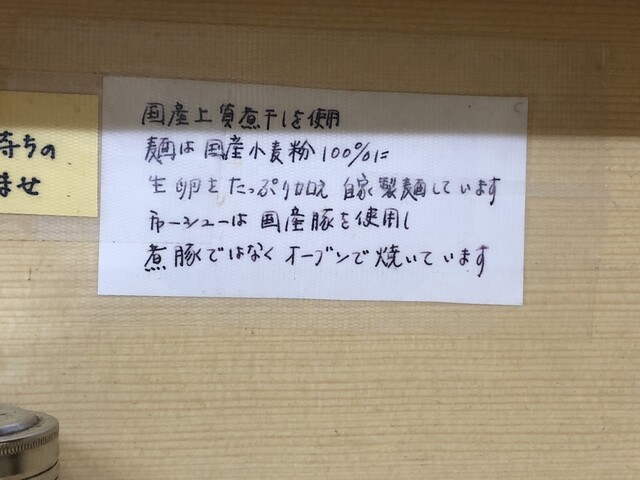 待ちの
ませ
国産上質煮干しを使用
麺は国産小麦粉100%に
生卵をたっぷり加え 自家製麺しています
チャーシューは国産豚を使用し
煮豚ではなくオーブンで焼いています